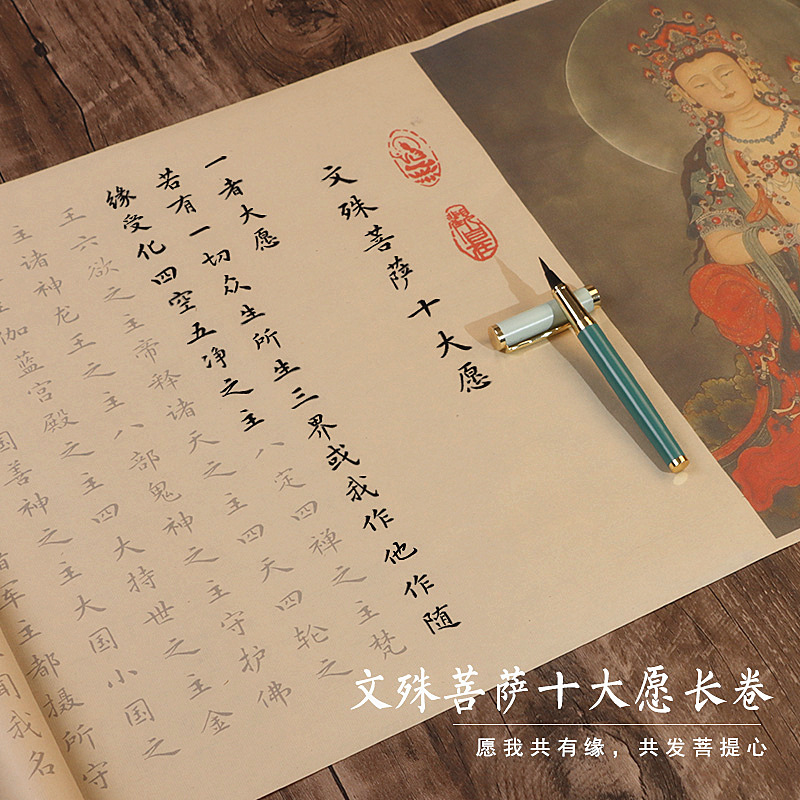 文殊菩萨十大愿
一者大愿
若有一切众生所生三界或我作他作随
缘受化四空五净之主八定四禅之主梵
王六欲之主帝释诸天之主四天四轮之
主诸神龙王之主八部鬼神之主守护佛
伽蓝宫殿之主四大持世之主金
国善神之主大国小国之
军主都摄所守
闻我名
文殊菩萨十大愿长卷
愿我共有缘，共发菩提心